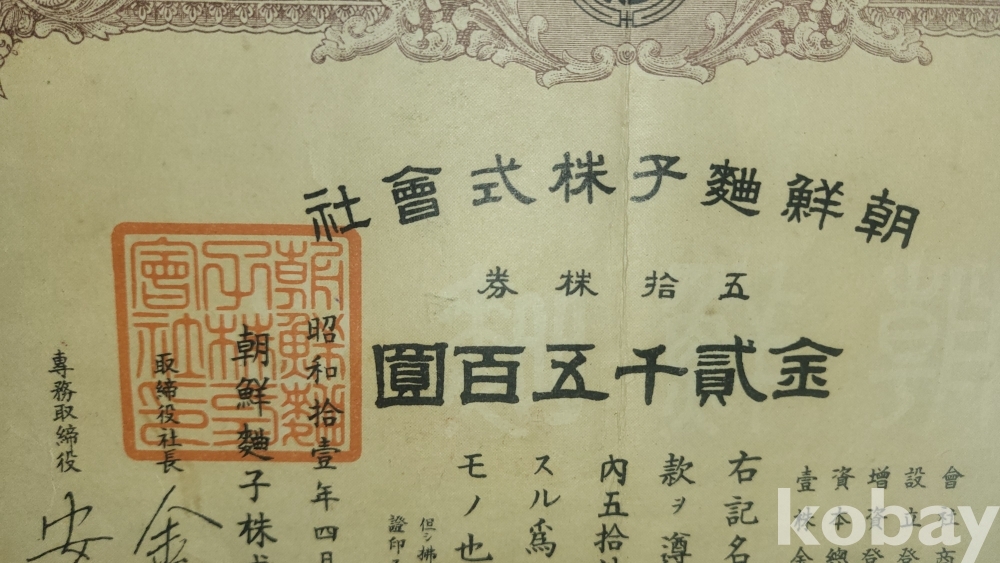 朝鮮麯子株式會社
五拾株券
金貳千五百圓
會社商
設立登
增資登
資本總
壹株金
右記名
款ヲ遵
內五拾
スル爲
モノ也
但シ拂
證印
昭和拾壹年四月
朝鮮麯子株式
取締役社長
專務取締役
朝鮮麯
子株式
會社印
kobay